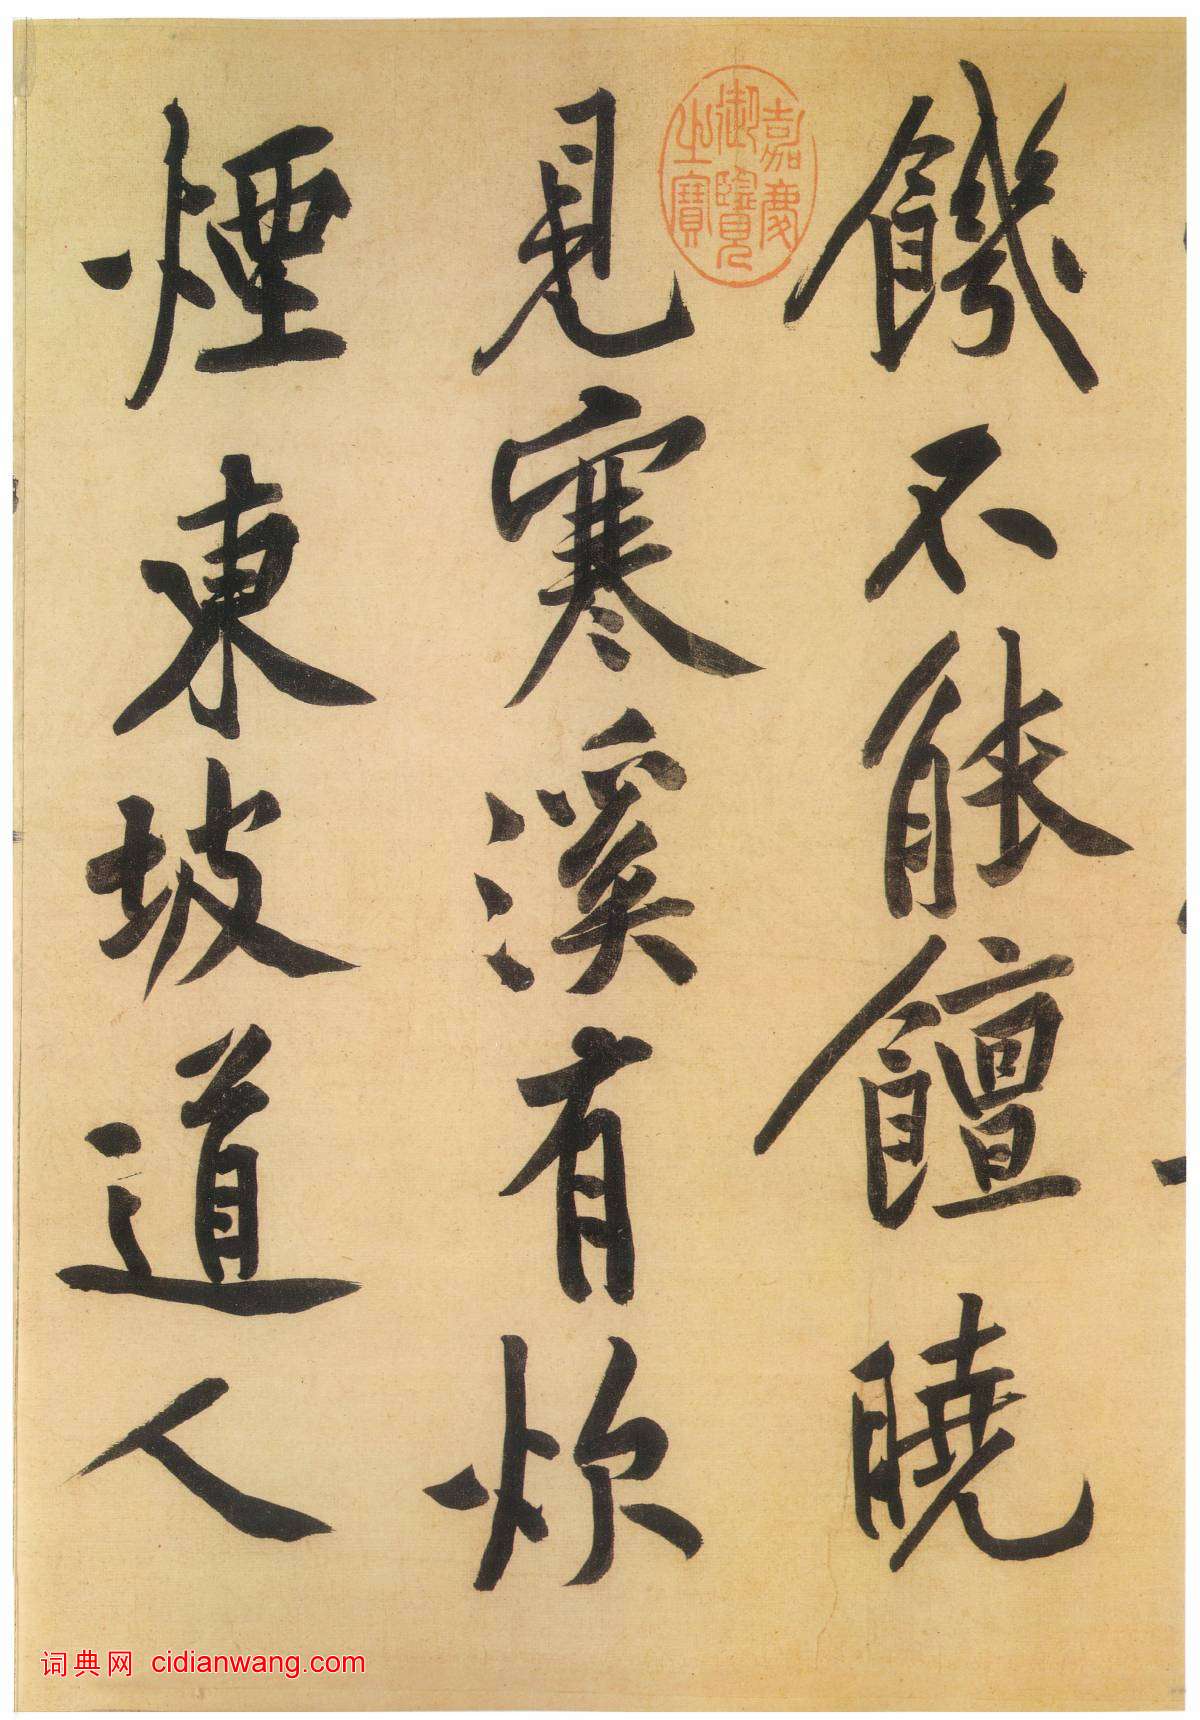 饑不能饘曉
見寒溪有炊
煙東坡道人
嘉慶
御覽
之寶
词典网 cidianwang.com